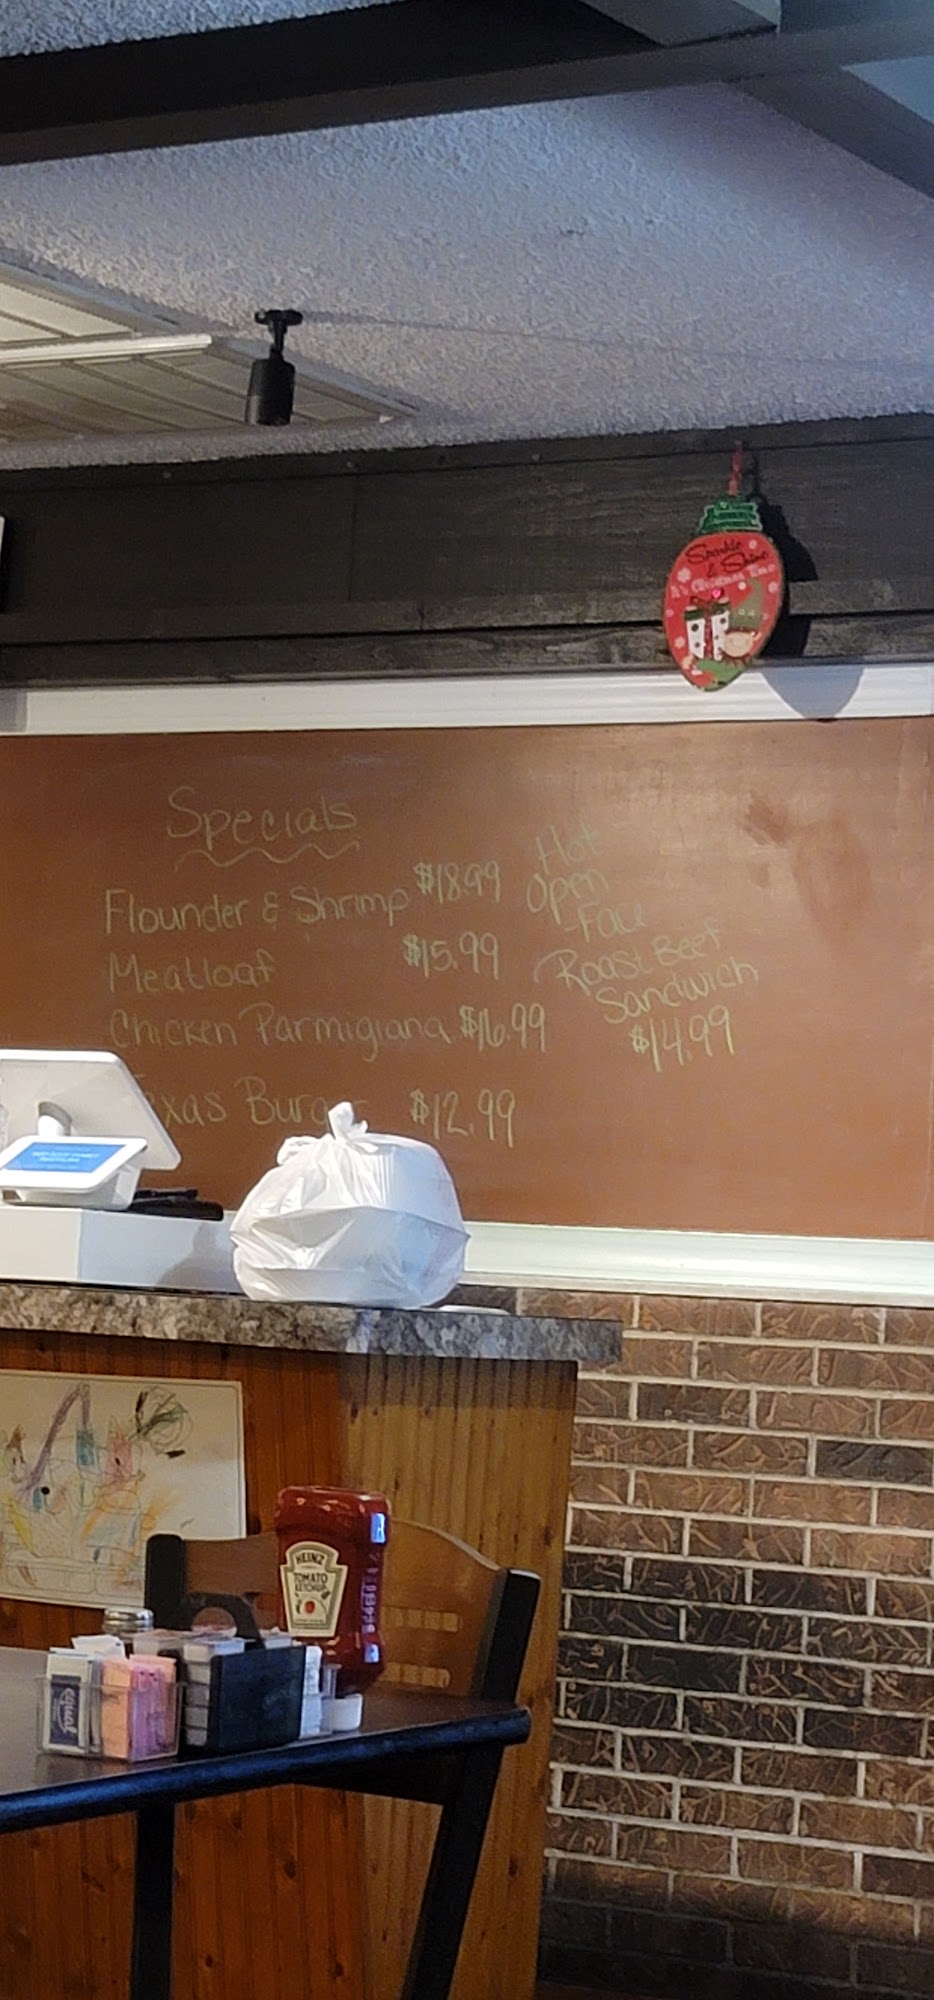 Sparkle
& Shine
It's Christmas Time
Specials
Flounder & Shrimp $18.99
Meatloaf $15.99
Chicken Parmigiana $16.99
Texas Burger $12.99
Hot
Open
Face
Roast Beef
Sandwich
$14.99
HEINZ
TOMATO
KETCHUP
equal